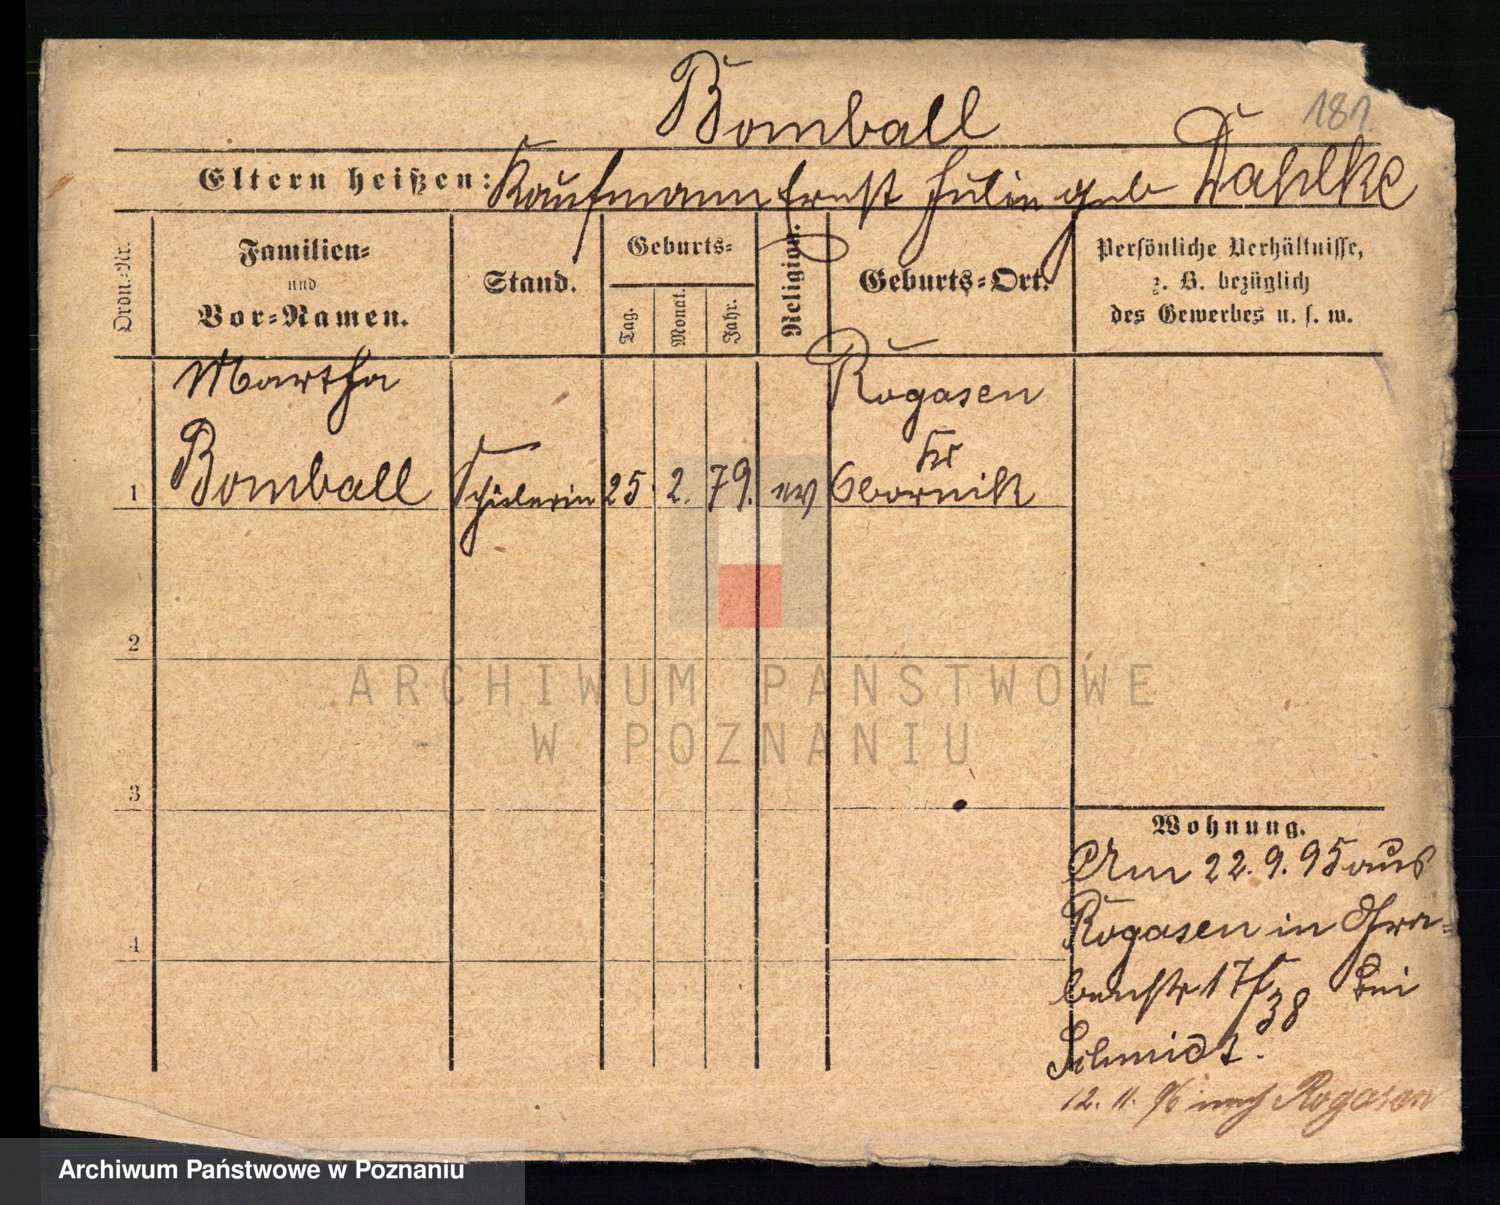 Bomball
181.
Eltern heißen: Kaufmann Ernst Julie geb Dahlke
Ordn.-Nr.
Familien-
und
Vor-Namen.
Stand.
Geburts-
Tag.
Monat.
Jahr.
Religion.
Geburts-Ort.
Persönliche Verhältnisse,
z. B. bezüglich
des Gewerbes u. s. w.
Martha
Rogasen
Krs
1 Bomball Schülerin 25. 2. 79. ev Obornik
2
3
4
ARCHIWUM PAŃSTWOWE
W POZNANIU
Wohnung.
Am 22.9.95 aus
Rogasen in Gra-
benstr 17/38 bei
Schmidt.
12. 11. 96 nach Rogasen
Archiwum Państwowe w Poznaniu